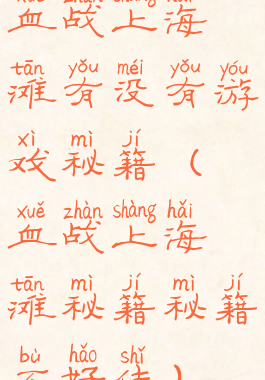 xuě zhàn shàng hǎi
血战上海
tān yǒu méi yǒu yóu
滩有没有游
xì mì jí
戏秘籍（
xuě zhàn shàng hǎi
血战上海
tān mì jí mì jí
滩秘籍秘籍
bù hǎo shǐ
不好使）